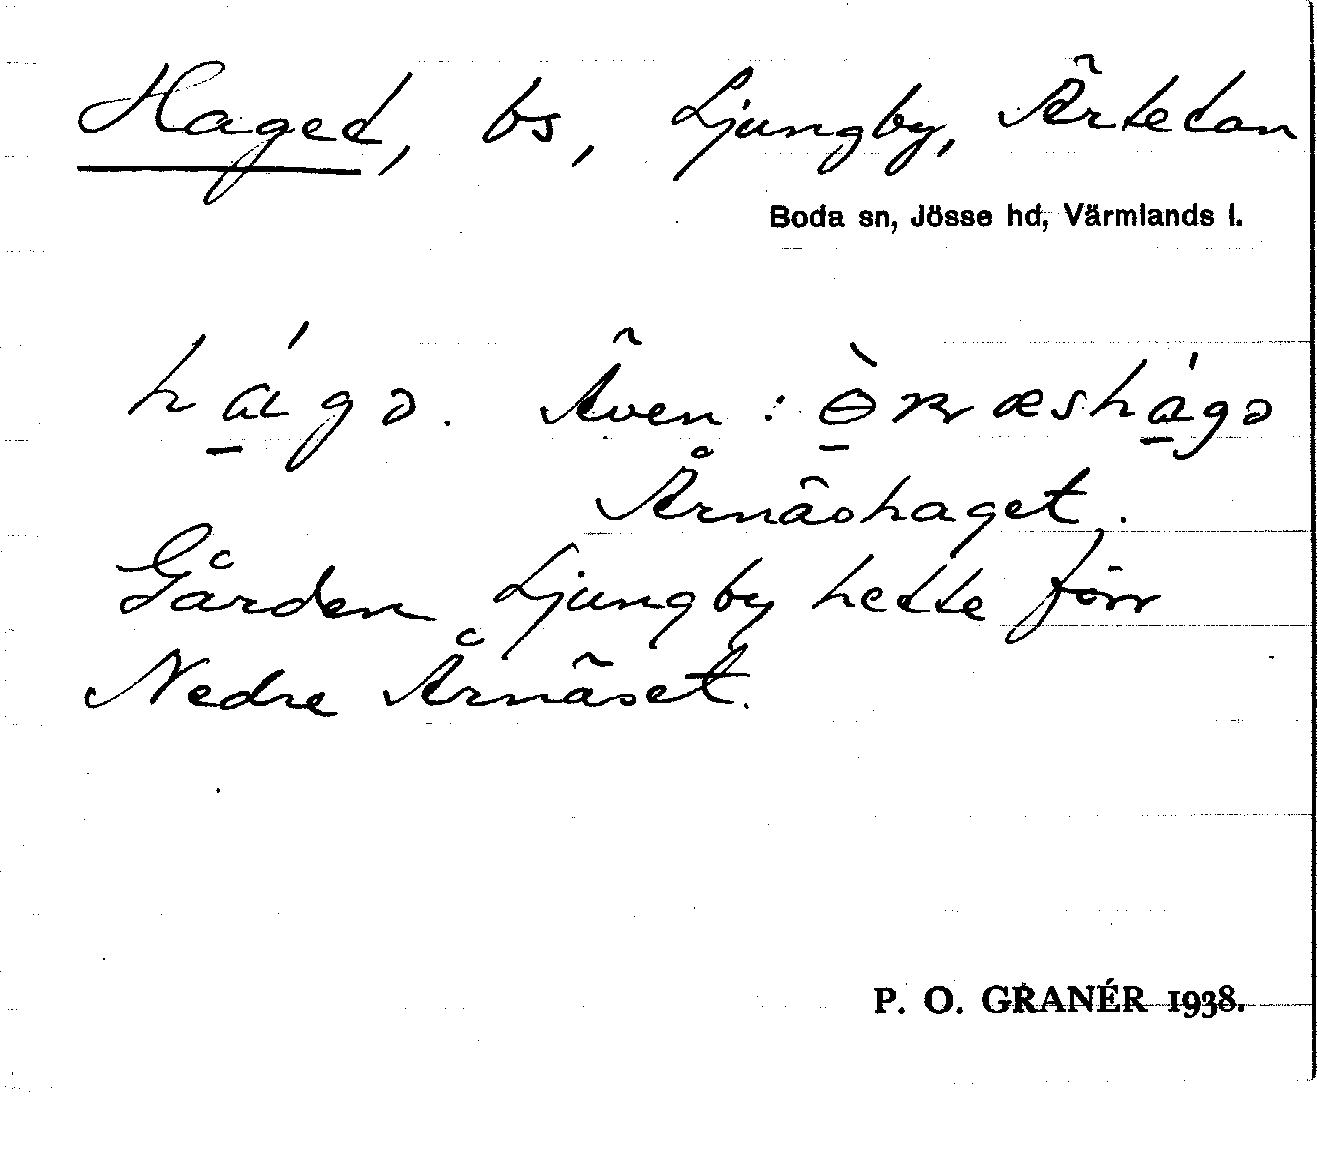 Haget, bs, Ljungby, Ärtetan
Boda sn, Jösse hd, Värmlands l.
há̱gə. Även: ɵ̱̀rnæshá̱gə
Årnäshaget.
Gården Ljungby hette förr
Nedre Årnäset.
P. O. GRANÉR 1938.